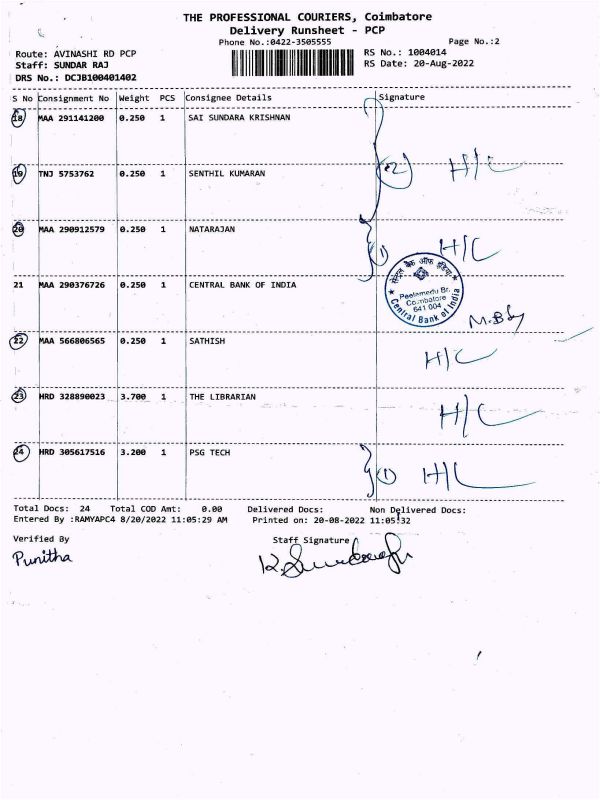 THE PROFESSIONAL COURIERS, Coimbatore
Delivery Runsheet - PCP
Phone No.:0422-3505555 Page No.:2
Route: AVINASHI RD PCP RS No.: 1004014
Staff: SUNDAR RAJ RS Date: 20-Aug-2022
DRS No.: DCJB100401402
S No Consignment No Weight PCS Consignee Details Signature
18 MAA 291141200 0.250 1 SAI SUNDARA KRISHNAN
19 TNJ 5753762 0.250 1 SENTHIL KUMARAN (2) H/C
20 MAA 290912579 0.250 1 NATARAJAN (1) H/C
21 MAA 290376726 0.250 1 CENTRAL BANK OF INDIA
सेन्ट्रल बैंक ऑफ इंडिया
Peelamedu Br.
Coimbatore
641 004
Central Bank of India
22 MAA 566806565 0.250 1 SATHISH H/C
23 HRD 328890023 3.700 1 THE LIBRARIAN H/C
24 HRD 305617516 3.200 1 PSG TECH (1) H/C
Total Docs: 24 Total COD Amt: 0.00 Delivered Docs: Non Delivered Docs:
Entered By :RAMYAPC4 8/20/2022 11:05:29 AM Printed on: 20-08-2022 11:05:32
Verified By Staff Signature
Punitha